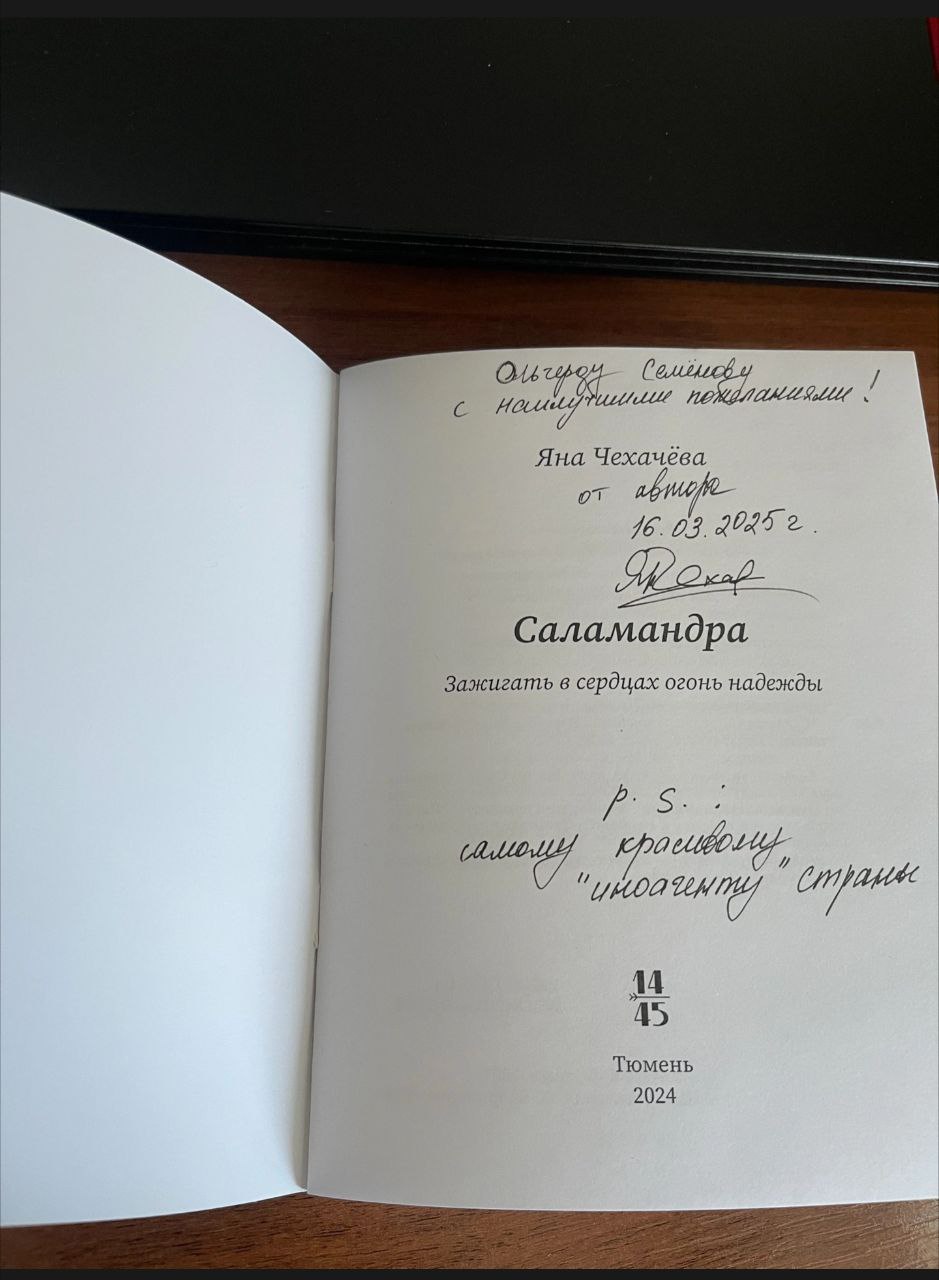 Ольгерду Семёнову
с наилучшими пожеланиями!
Яна Чехачёва
от автора
16.03.2025 г.
Саламандра
Зажигать в сердцах огонь надежды
p. s. :
самому красивому
"иноагенту" страны
14
45
Тюмень
2024